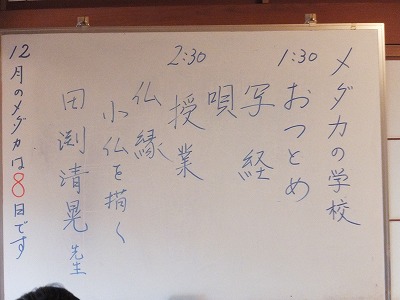 メダカの学校
1:30 おつとめ
写経
唄
2:30 授業
仏縁
小仏を描く
田渕清晃 先生
12月のメダカは8日です